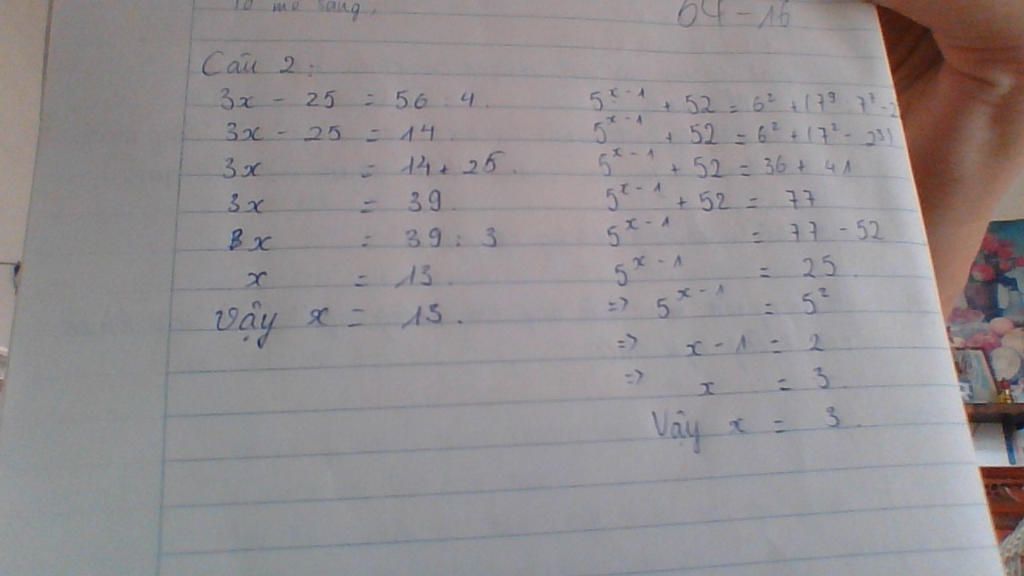 64 - 16
Câu 2:
3x - 25 = 56 : 4.
3x - 25 = 14.
3x = 14 + 25.
3x = 39.
x = 39 : 3
x = 13.
Vậy x = 13.
5^{x-1} + 52 = 6² + (7⁹ : 7⁷ - 2
5^{x-1} + 52 = 6² + (7² - 2³)
5^{x-1} + 52 = 36 + 41
5^{x-1} + 52 = 77
5^{x-1} = 77 - 52
5^{x-1} = 25.
=> 5^{x-1} = 5²
=> x - 1 = 2
=> x = 3.
Vậy x = 3.